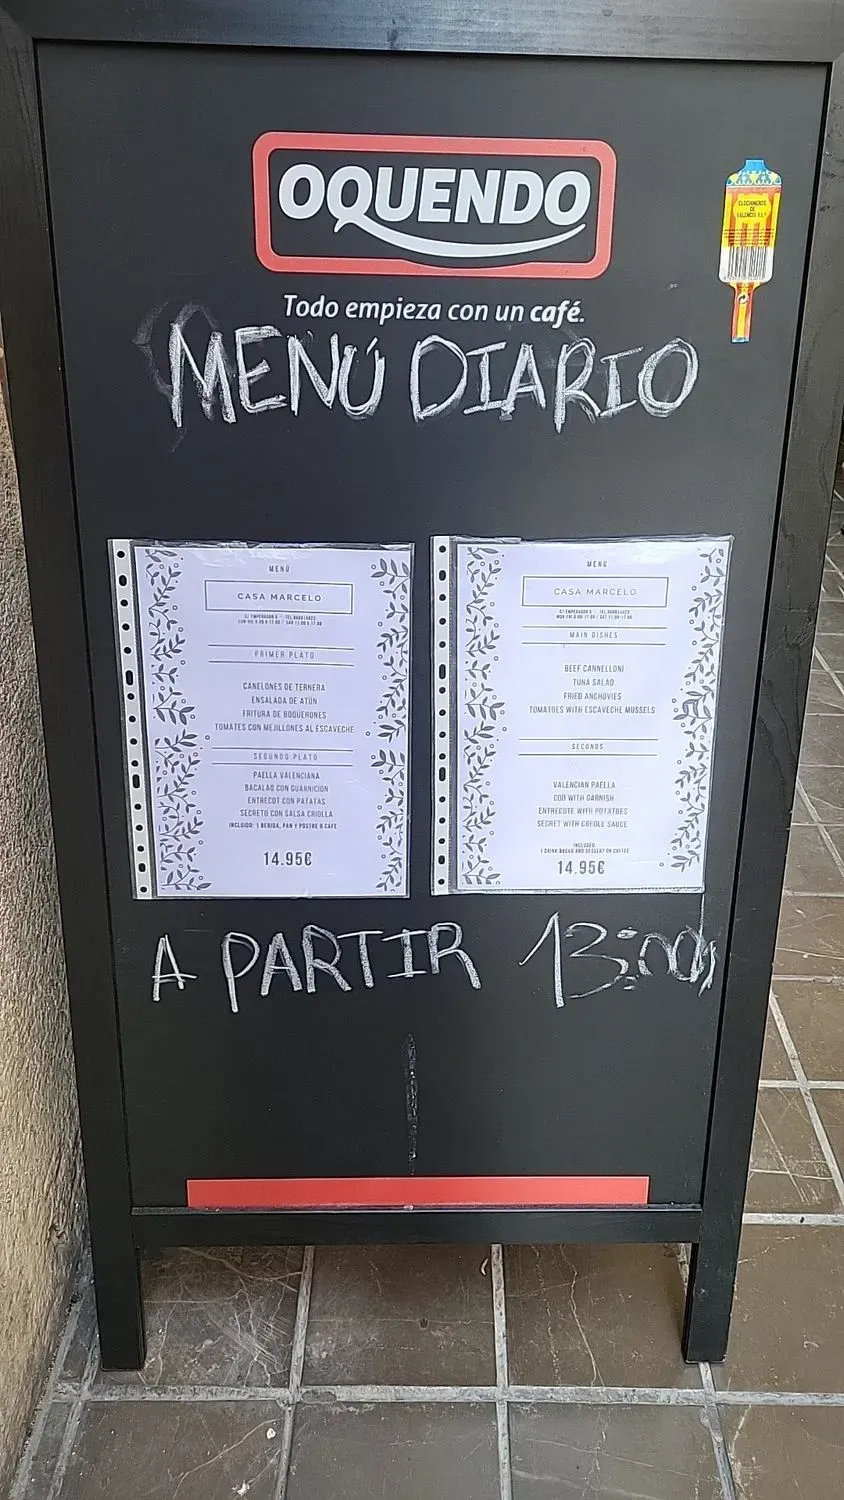 OQUENDO
Todo empieza con un café.
CLOCHINEROS
DE
VALENCIA S.L.
MENÚ DIARIO
MENÚ
CASA MARCELO
C/ EMPERADOR 5
PRIMER PLATO
CANELONES DE TERNERA
ENSALADA DE ATÚN
FRITURA DE BOQUERONES
TOMATES CON MEJILLONES AL ESCAVECHE
SEGUNDO PLATO
PAELLA VALENCIANA
BACALAO CON GUARNICIÓN
ENTRECOT CON PATATAS
SECRETO CON SALSA CRIOLLA
INCLUIDO: 1 BEBIDA, PAN Y POSTRE O CAFE
14.95€
MENÚ
CASA MARCELO
C/ EMPERADOR 5
MAIN DISHES
BEEF CANNELLONI
TUNA SALAD
FRIED ANCHOVIES
TOMATOES WITH ESCAVECHE MUSSELS
SECONDS
VALENCIAN PAELLA
COD WITH GARNISH
ENTRECOTE WITH POTATOES
SECRET WITH CREOLE SAUCE
INCLUDED:
1 DRINK BREAD AND DESSERT OR COFFEE
14.95€
A PARTIR 13:00h